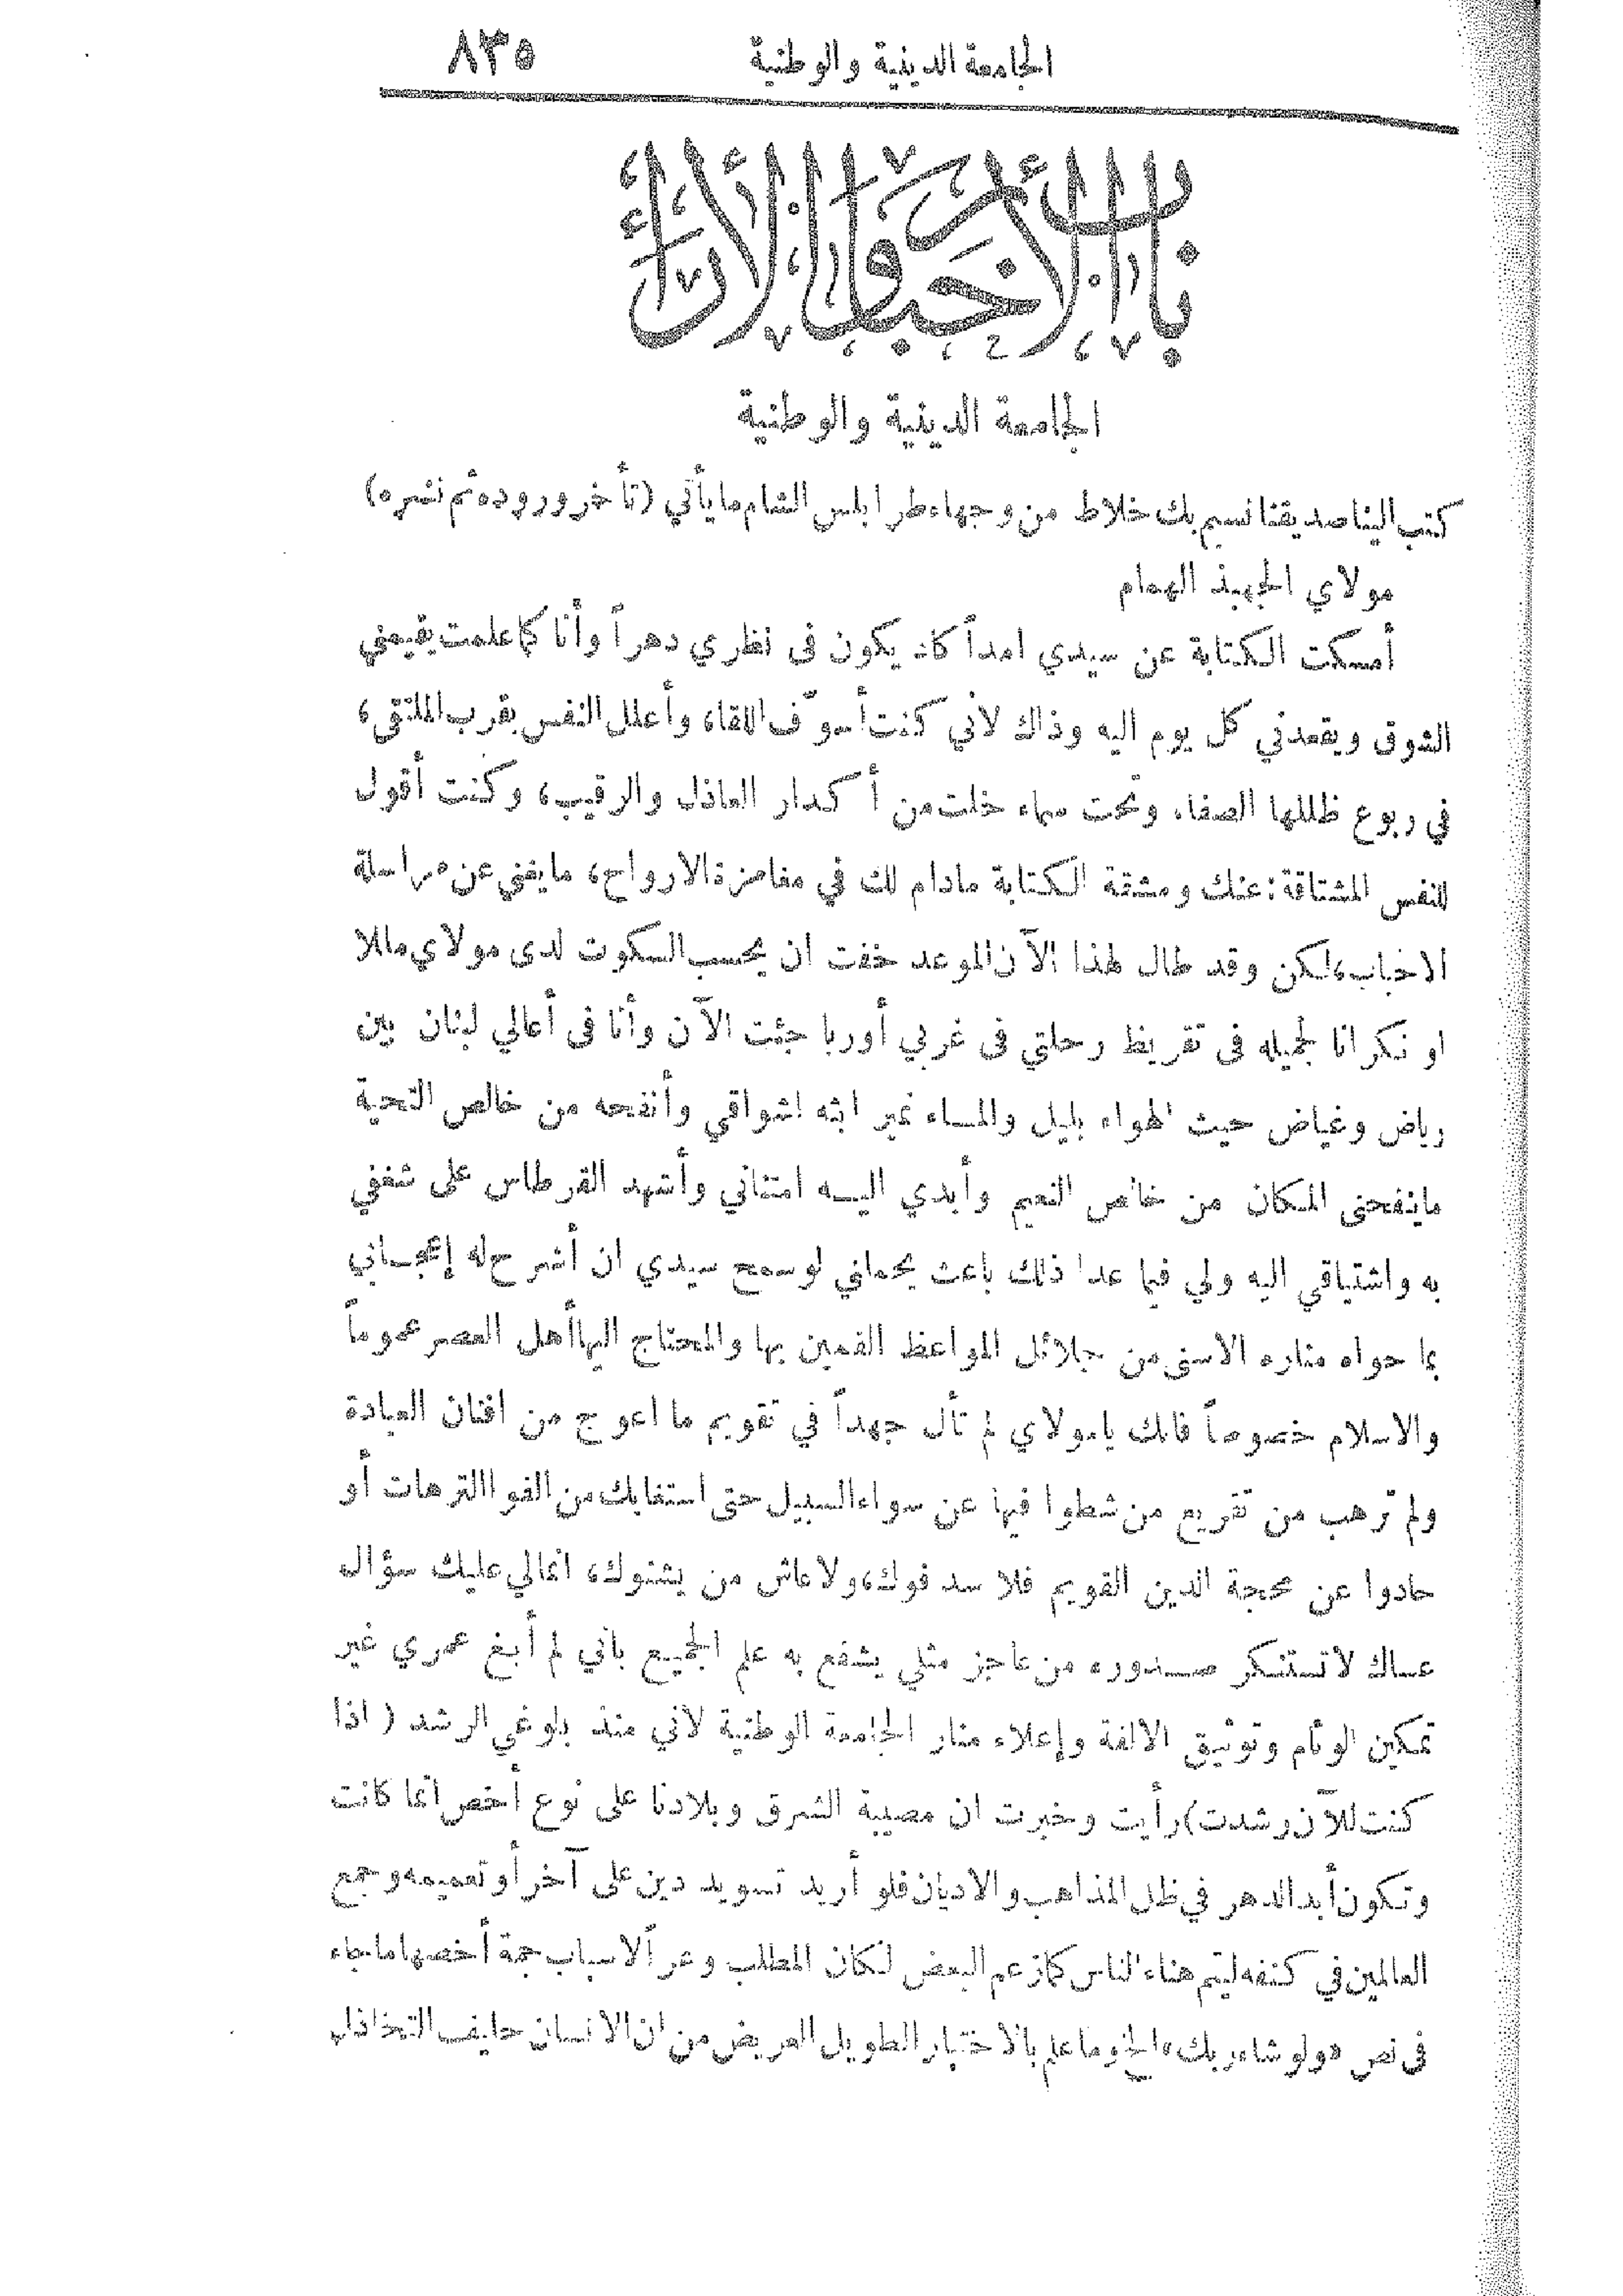 الجامعة الدينية والوطنية ٨٣٥
باب الأخبار والآراء
الجامعة الدينية والوطنية
كتب الينا صديقنا نسيم بك خلاط من وجهاء طرابلس الشام ما يأتي (تأخر وروده ثم نشره)
مولاي الجهبذ الهمام
أمسكت الكتابة عن سيدي امداً كاد يكون في نظري دهراً وأنا كما علمت يقيمني
الشوق ويقعدني كل يوم اليه وذاك لأني كنت أسوّف اللقاء، وأعلل النفس بقرب الملتقى،
في ربوع ظللها الصفاء، وتحت سماء خلت من أكدار العاذل والرقيب، وكنت أقول
للنفس المشتاقة: عنك ومشقة الكتابة مادام لك في مغامزة الارواح، ما يغني عن مراسلة
الاحباب، لكن وقد طال لهذا الآن الموعد خفت ان يحسب السكوت لدى مولاي مللا
او نكرانا لجميله في تقريظ رحلتي في غربي أوربا جئت الآن وأنا في أعالي لبنان بين
رياض وغياض حيث الهواء بليل والمساء نمير ابثه اشواقي وأنفحه من خالص التحية
ماينفحني المكان من خالص النعيم وأبدي اليـه امتناني وأشهد القرطاس على شغفي
به واشتياقي اليه ولي فيما عدا ذلك باعث يحملني لوسمح سيدي ان أشرح له إعجـابي
بما حواه مناره الاسنى من جلائل المواعظ القمين بها والمحتاج اليها أهل العصر عموماً
والاسلام خصوصاً فانك يامولاي لم تأل جهداً في تقويم ما اعوج من افنان العبادة
ولم ترهب من تقريع من شطوا فيها عن سواء السبيل حتى استغابك من الفوا الترهات أو
حادوا عن محجة الدين القويم فلا سد فوك، ولا عاش من يشنوك، انما لي عليك سؤال
عساك لا تستنكر صـدوره من عاجز مثلي يشفع به علم الجميـع باني لم أبغ عمري غير
تمكين الوئام وتوثيق الالفة وإعلاء منار الجامعة الوطنية لأني منذ بلوغي الرشد (اذا
كنت للآن رشدت) رأيت وخبرت ان مصيبة الشرق وبلادنا على نوع أخص انما كانت
وتكون أبد الدهر في ظل المذاهب والاديان فلو أريد تسويد دين على آخر أو تعميمه وجمع
العالمين في كنفه ليتم هناء الناس كما زعم البعض لكان المطلب وعراً لاسباب جمة أخصها ما جاء
في نص «ولو شاء ربك» الخ وما علم بالاختبار الطويل العريض من ان الانسان حليف التخاذل